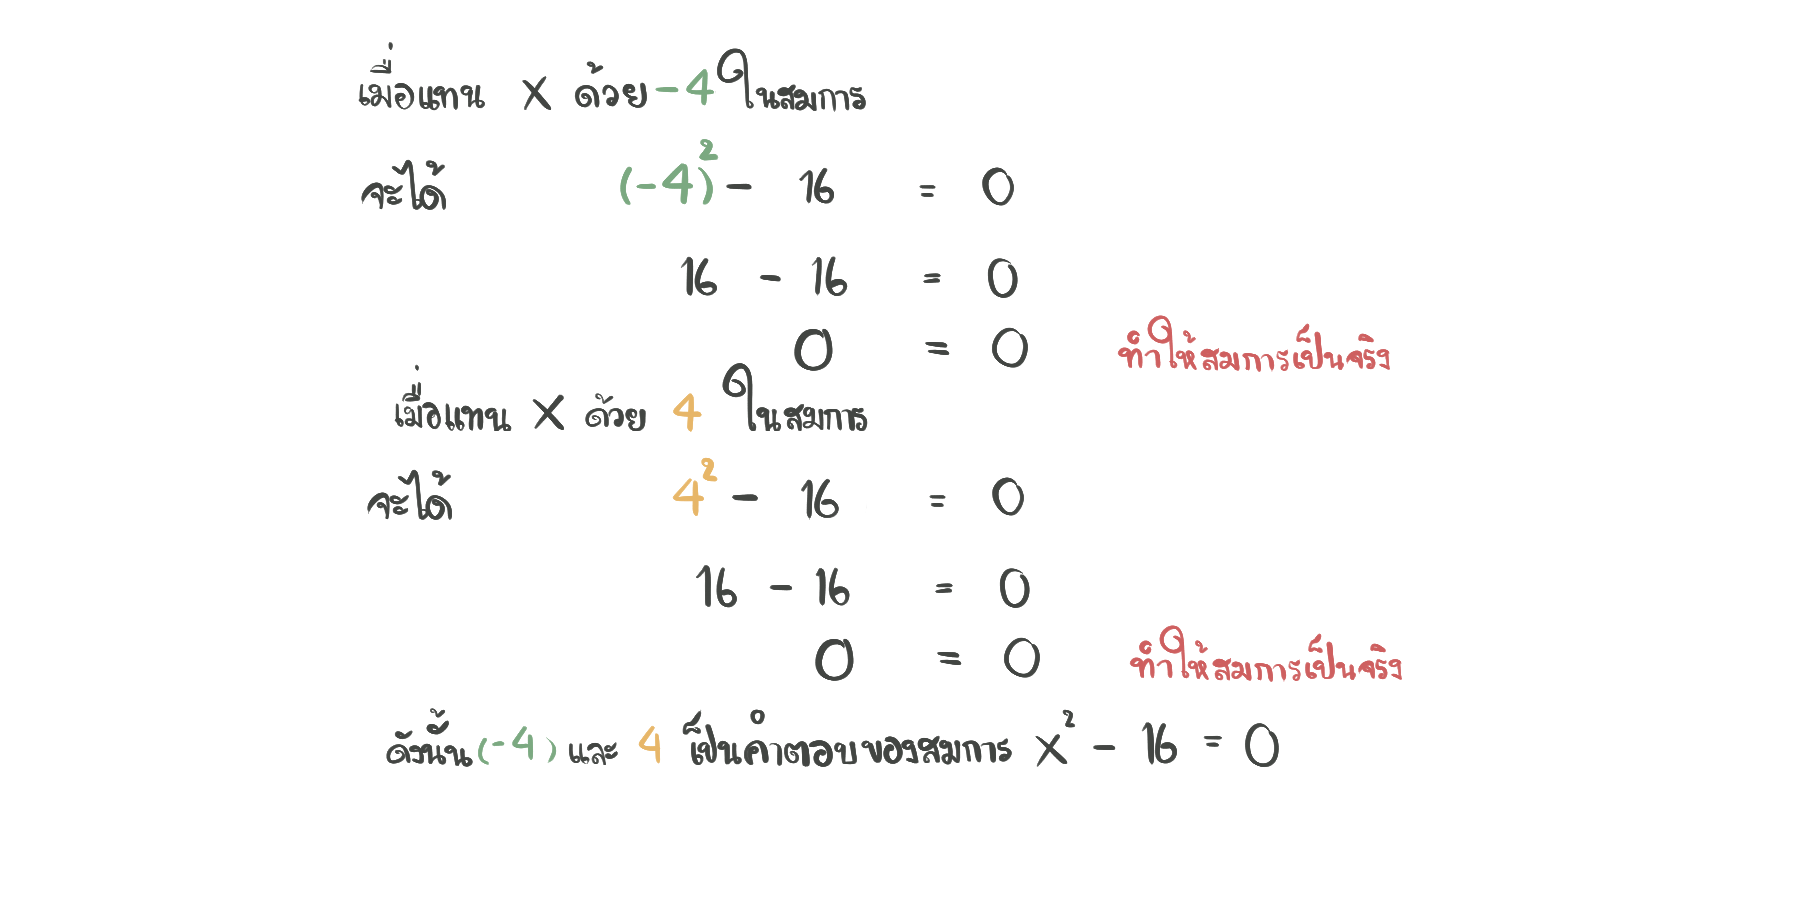 เมื่อแทน x ด้วย -4 ในสมการ
จะได้ (-4)² - 16 = 0
16 - 16 = 0
0 = 0 ทำให้สมการเป็นจริง
เมื่อแทน x ด้วย 4 ในสมการ
จะได้ 4² - 16 = 0
16 - 16 = 0
0 = 0 ทำให้สมการเป็นจริง
ดังนั้น (-4) และ 4 เป็นคำตอบของสมการ x² - 16 = 0